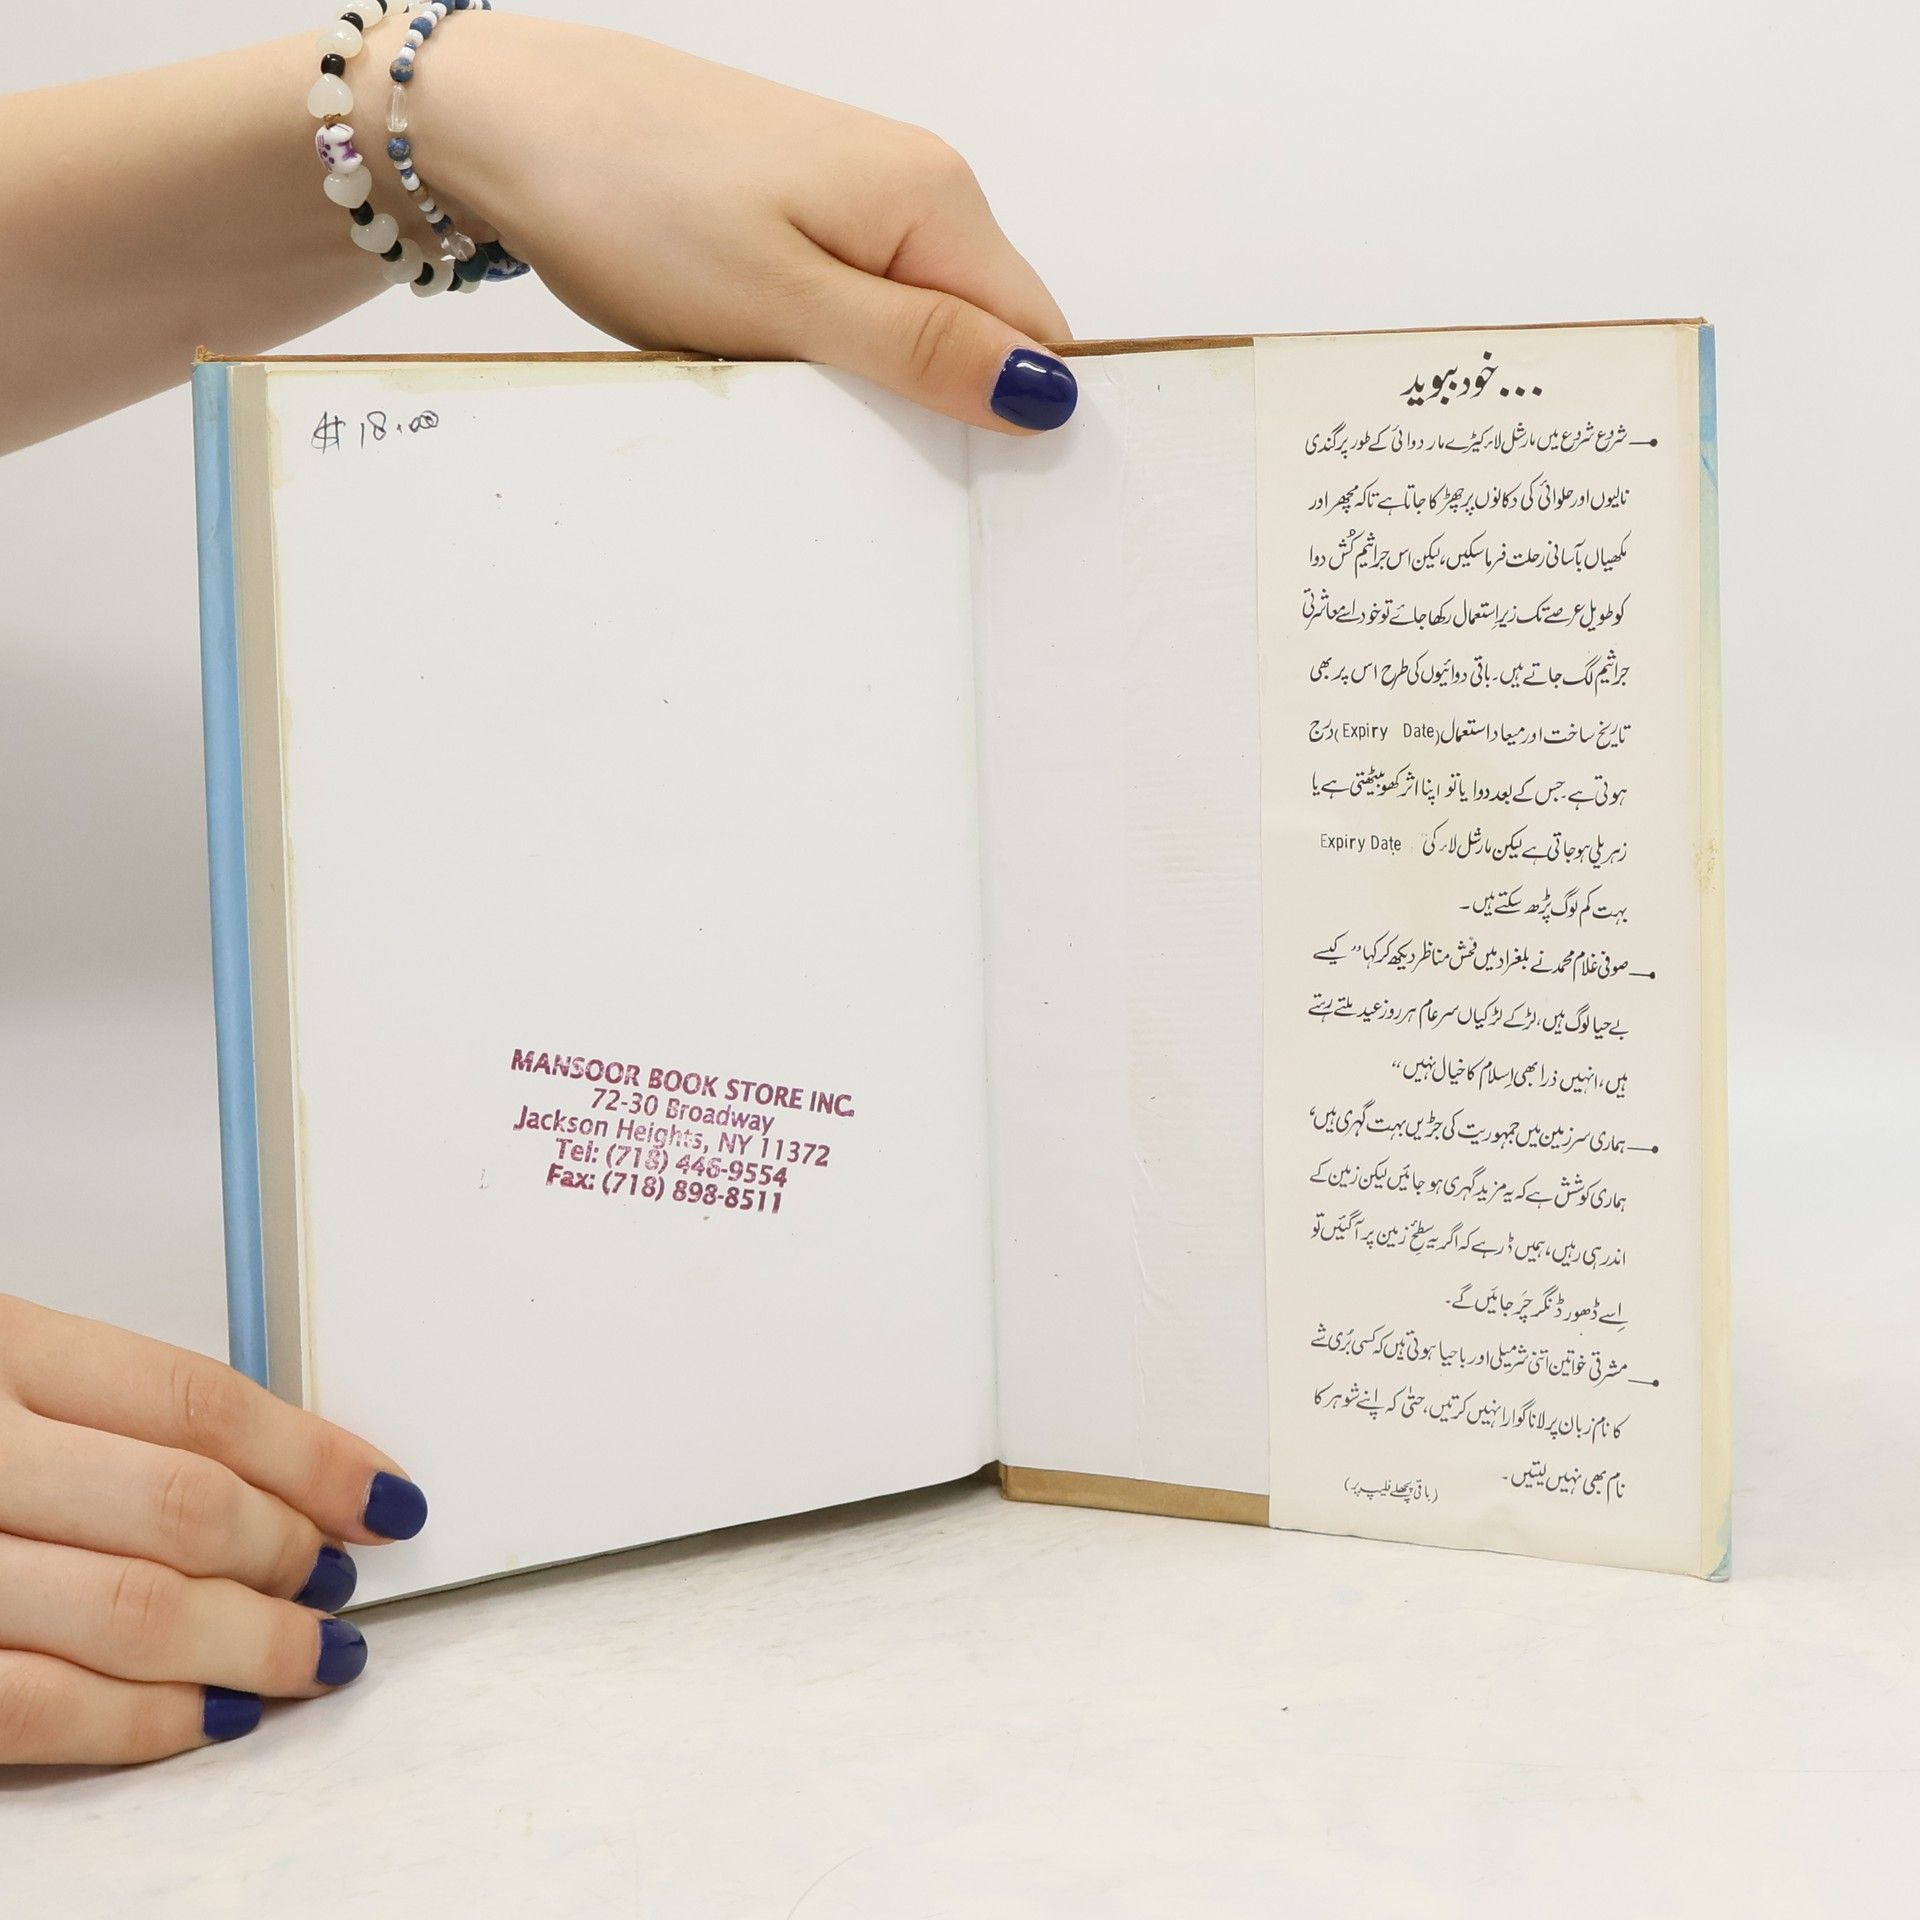 $ 18.00
MANSOOR BOOK STORE INC.
72-30 Broadway
Jackson Heights, NY 11372
Tel: (718) 446-9554
Fax: (718) 898-8511
...خود ببوید
شروع شروع میں مارشل لاء کیڑے مار دوائی کے طور پر گندی
نالیوں اور حلوائی کی دکانوں پر چھڑکا جاتا ہے تاکہ مچھر اور
مکھیاں بآسانی رحلت فرما سکیں، لیکن اس جراثیم کُش دوا
کو طویل عرصے تک زیرِ استعمال رکھا جائے تو خود اسے معاشرتی
جراثیم لگ جاتے ہیں۔ باقی دوائیوں کی طرح اس پر بھی
تاریخ ساخت اور میعاد استعمال (Expiry Date) درج
ہوتی ہے۔ جس کے بعد دوا یا تو اپنا اثر کھو بیٹھتی ہے یا
زہریلی ہو جاتی ہے لیکن مارشل لاء کی Expiry Date
بہت کم لوگ پڑھ سکتے ہیں۔
صوفی غلام محمد نے بلغراد میں فحش مناظر دیکھ کر کہا "کیسے
بے حیا لوگ ہیں، لڑکے لڑکیاں سرِعام ہر روز عید ملتے رہتے
ہیں، انہیں ذرا بھی اسلام کا خیال نہیں"
ہماری سرزمین میں جمہوریت کی جڑیں بہت گہری ہیں،
ہماری کوشش ہے کہ یہ مزید گہری ہو جائیں لیکن زمین کے
اندر ہی رہیں، ہمیں ڈر ہے کہ اگر یہ سطح زمین پر آ گئیں تو
اِسے ڈھور ڈنگر چَر جائیں گے۔
مشرقی خواتین اتنی شرمیلی اور باحیا ہوتی ہیں کہ کسی بُری شے
کا نام زبان پر لانا گوارا نہیں کرتیں، حتیٰ کہ اپنے شوہر کا
نام بھی نہیں لیتیں۔
(باقی پچھلے فلیپ پر)